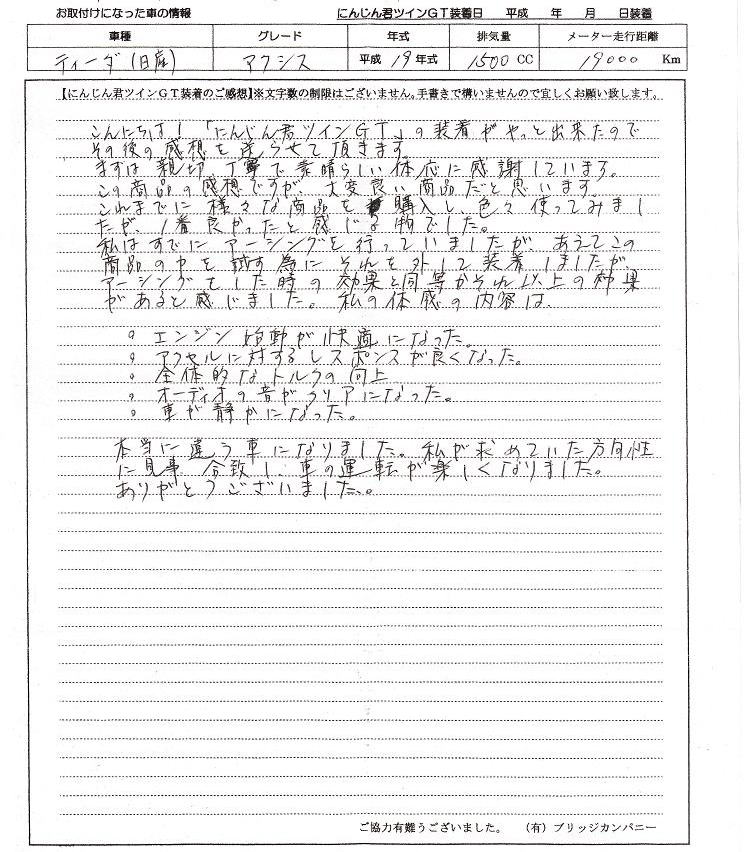 お取付けになった車の情報 にんじん君ツインGT装着日 平成 年 月 日装着
車種 グレード 年式 排気量 メーター走行距離
ティーダ(日産) アクシス 平成 19 年式 1500 CC 19000 Km
【にんじん君ツインGT装着のご感想】※文字数の制限はございません。手書きで構いませんので宜しくお願い致します。
こんにちは!「にんじん君ツインGT」の装着がやっと出来たので
その後の感想を送らせて頂きます
まずは親切、丁寧で素晴らしい体応に感謝しています。
この商品の感想ですが、大変良い商品だと思います。
これまでに様々な商品を購入し色々使ってみまし
たが、1番良かったと感じる物でした。
私はすでにアーシングを行っていましたが、あえてこの
商品の力を試す為にそれを外して装着しましたが、
アーシングをした時の効果と同等かそれ以上の効果
があると感じました。私の体感の内容は、
。エンジン始動が快適になった。
。アクセルに対するレスポンスが良くなった。
。全体的なトルクの向上
。オーディオの音がクリアになった。
。車が静かになった。
本当に違う車になりました。私が求めていた方向性
に見事合致し、車の運転が楽しくなりました。
ありがとうございました。
ご協力有難うございました。 (有)ブリッジカンパニー